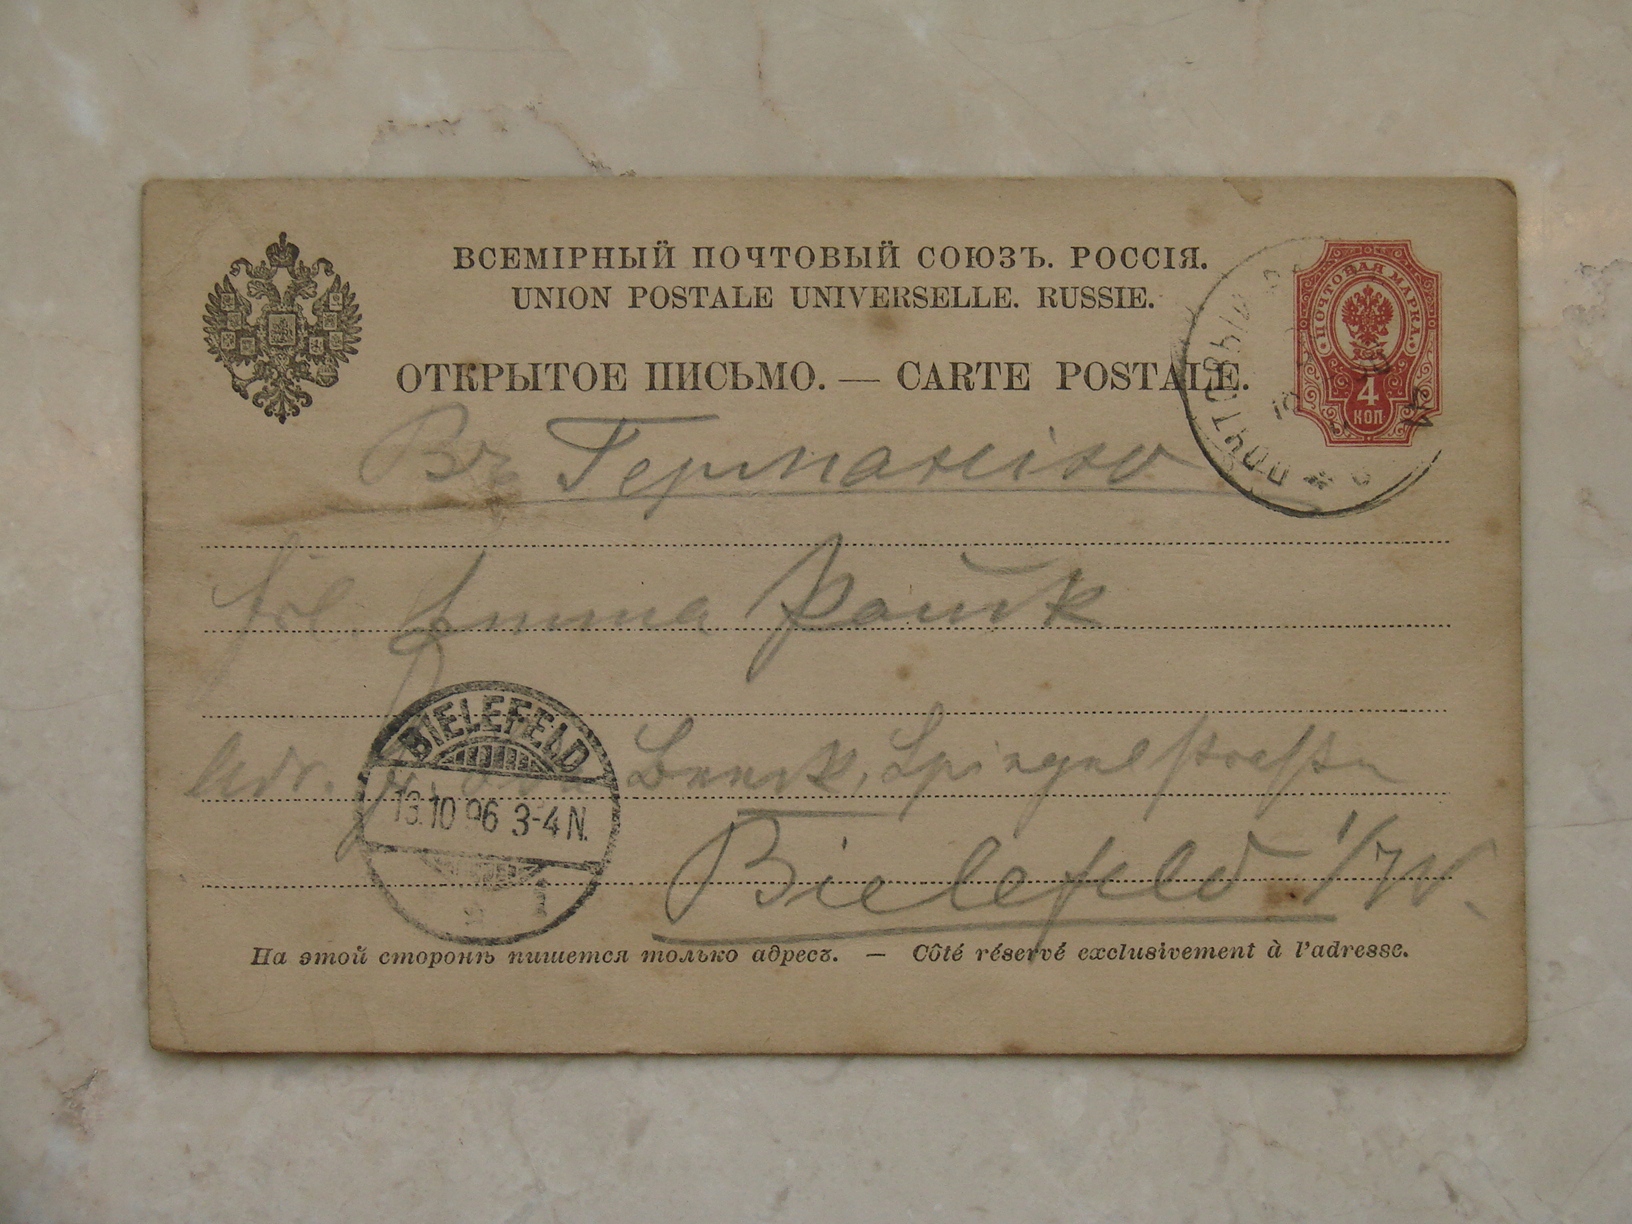 ВСЕМІРНЫЙ ПОЧТОВЫЙ СОЮЗЪ. РОССІЯ.
UNION POSTALE UNIVERSELLE. RUSSIE.
ОТКРЫТОЕ ПИСЬМО. — CARTE POSTALE.
ПОЧТОВАЯ МАРКА
4
КОП
Въ Германію
Frl. Emma
BIELEFELD
13.10 96 3-4 N.
1
Adr. Spiegelstraße
Bielefeld i/W.
На этой сторонѣ пишется только адресъ. — Côté réservé exclusivement à l'adresse.